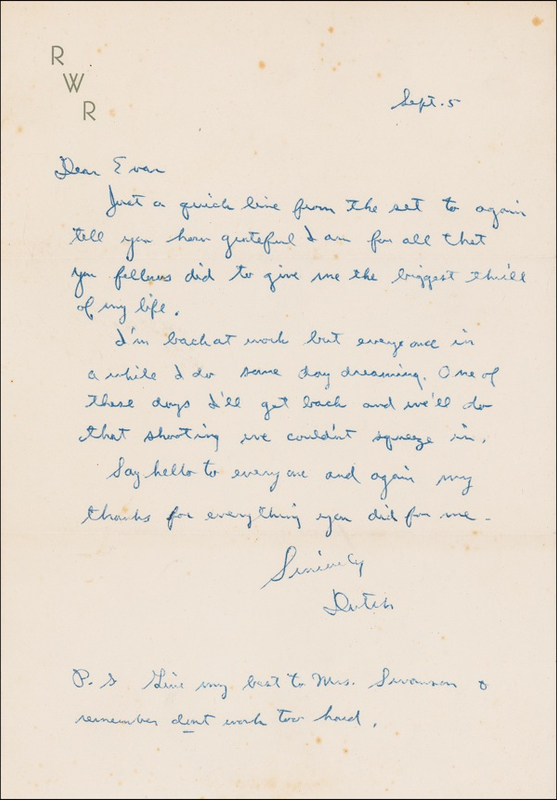 R
W
R
Sept. 5
Dear Evan
Just a quick line from the set to again
tell you how grateful I am for all that
you fellows did to give me the biggest thrill
of my life.
I'm back at work but every once in
a while I do some day dreaming. One of
these days I'll get back and we'll do
that shooting we couldn't squeeze in.
Say hello to everyone and again my
thanks for everything you did for me.
Sincerely
Dutch
P.S Give my best to Mrs. Swanson &
remember dont work too hard.